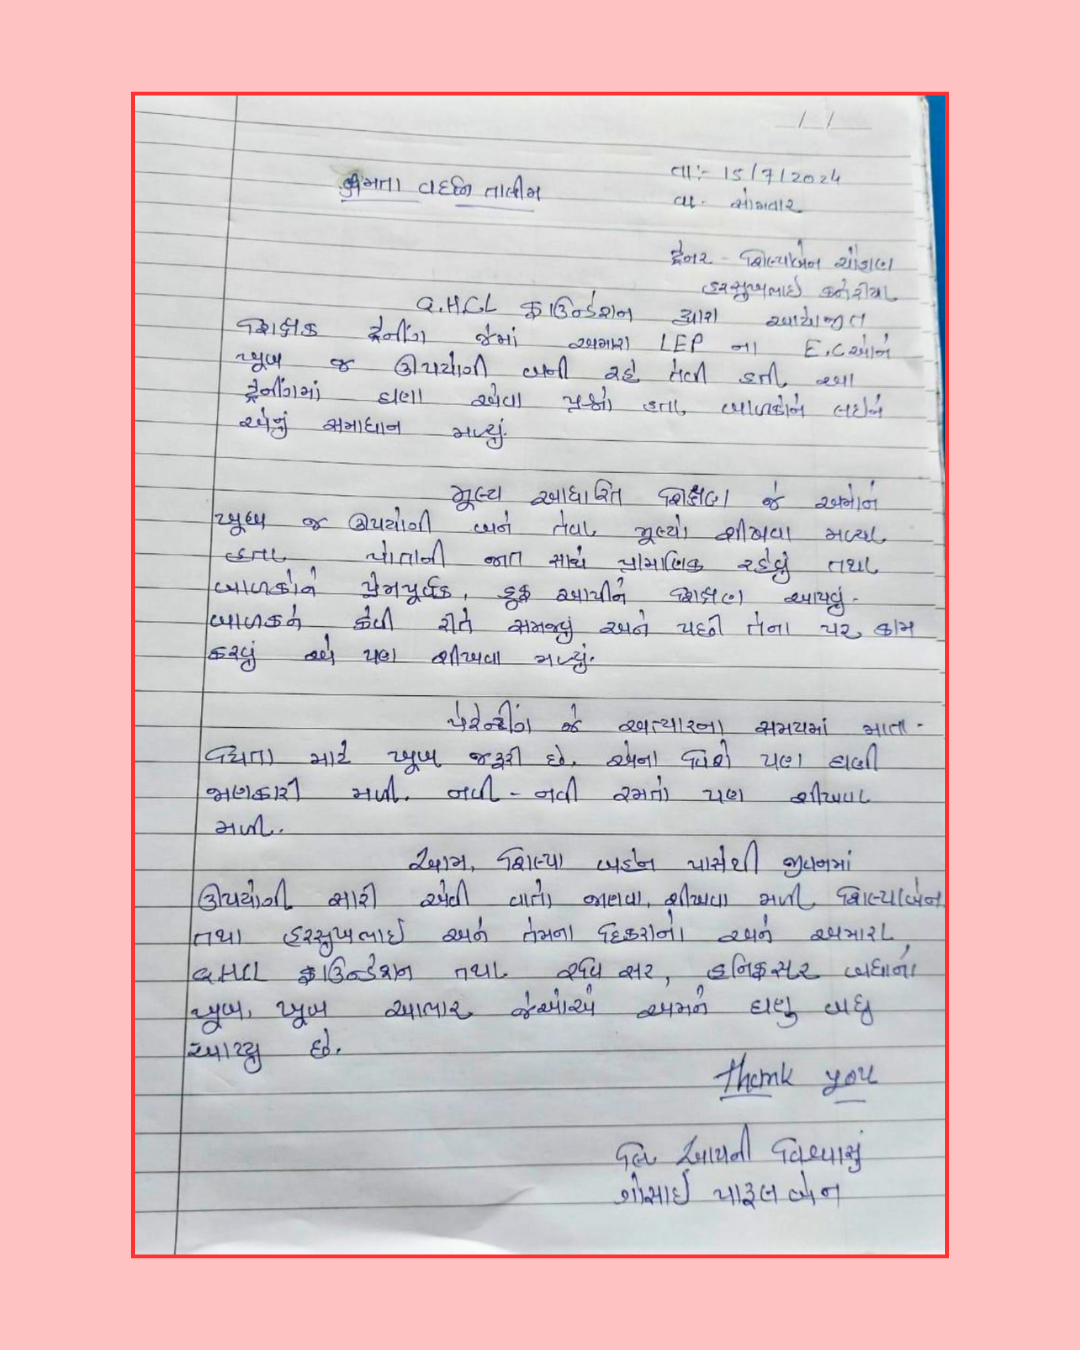 તા:- 15/7/2024
ક્ષમતા વર્ધન તાલીમ
વાર- સોમવાર
ટ્રેનર - શિલ્પાબેન ચૌહાણ
હરસુખભાઇ કનેરીયા
G.HCL ફાઉન્ડેશન દ્વારા આયોજીત
શિક્ષક ટ્રેનીંગ જેમાં અમારા LEP ના E.C ઓને
ખૂબ જ ઊપયોગી બની રહે તેવી હતી. આ
ટ્રેનીંગમાં ઘણા એવા પ્રશ્નો હતા, બાળકોને લઇને
એનું સમાધાન મળ્યું.
મૂલ્ય આધારિત શિક્ષણ જે અમોને
ખૂબ જ ઊપયોગી બને તેવા મૂલ્યો શીખવા મળ્યા
હતા. પોતાની જાત સાથે પ્રામાણિક રહેવું તથા
બાળકોને પ્રેમપૂર્વક, હુંફ આપીને શિક્ષણ આપવું.
બાળકને કેવી રીતે સમજવું અને પછી તેના પર કામ
કરવું એ પણ શીખવા મળ્યું.
પેરેન્ટીંગ જે અત્યારના સમયમાં માતા-
પિતા માટે ખૂબ જરૂરી છે. એના વિશે પણ ઘણી
જાણકારી મળી. નવી-નવી રમતો પણ શીખવા
મળી.
આમ, શિલ્પા બહેન પાસેથી જીવનમાં
ઊપયોગી સારી એવી વાતો જાણવા, શીખવા મળી શિલ્પાબેન
તથા હરસુખભાઇ અને તેમના દિકરાનો અને અમારા,
GHCL ફાઉન્ડેશન તથા સર, હનિફસર બધાનો
ખૂબ, ખૂબ આભાર જેઓએ અમને ઘણુ બધુ
આપ્યુ છે.
Thank you
લિ આપની વિશ્વાસું
ગોસાઇ પારૂલબેન